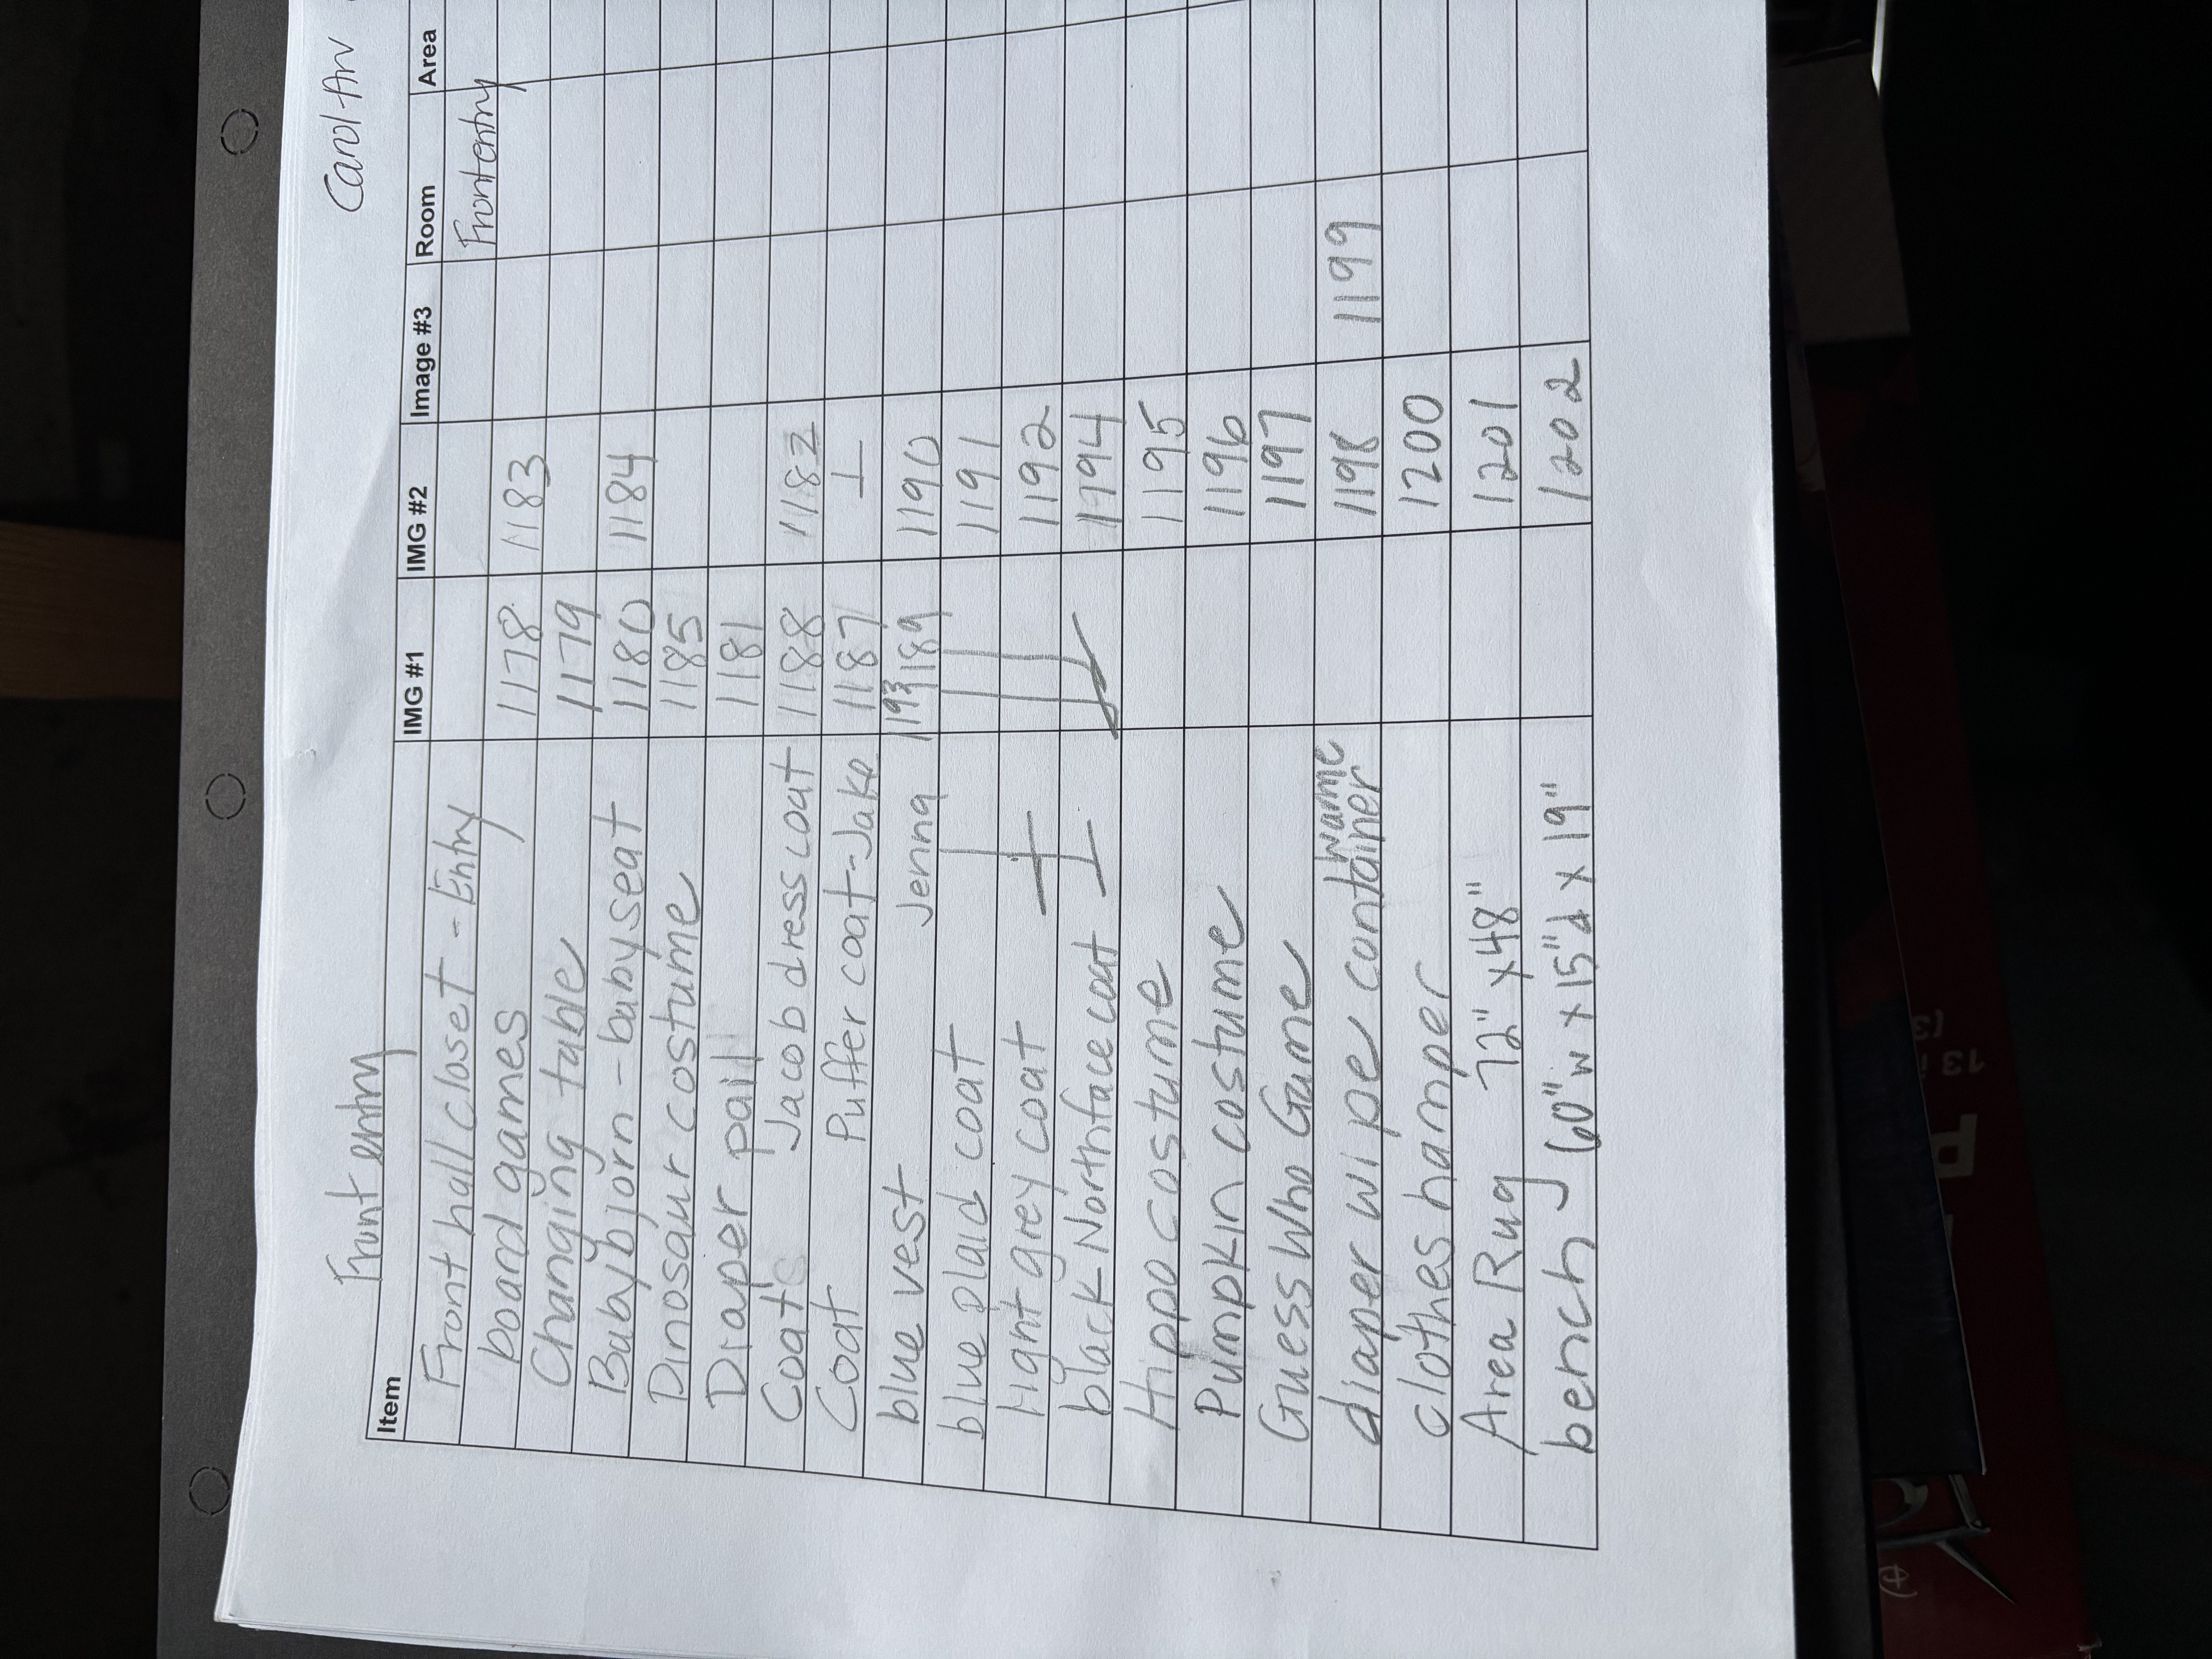 Front entry Carol An
Item IMG #1 IMG #2 Image #3 Room Area
Front hall closet - Entry Front entry
board games 1178 1183
Changing table 1179
Babybjorn - baby seat 1180 1184
Dinosaur costume 1185
Diaper pail 1181
Coats Jacob dress coat 1188 1182
Coat Puffer coat - Jake 1187
blue vest Jenna 1193 1189 1190
blue plaid coat 1191
light grey coat 1192
black Northface coat 1194
Hippo costume 1195
Pumpkin costume 1196
Guess Who Game 1197
diaper wipe container 1198 1199
clothes hamper 1200
Area Rug 72" x 48" 1201
bench 60"w x 15"d x 19" 1202
13 i